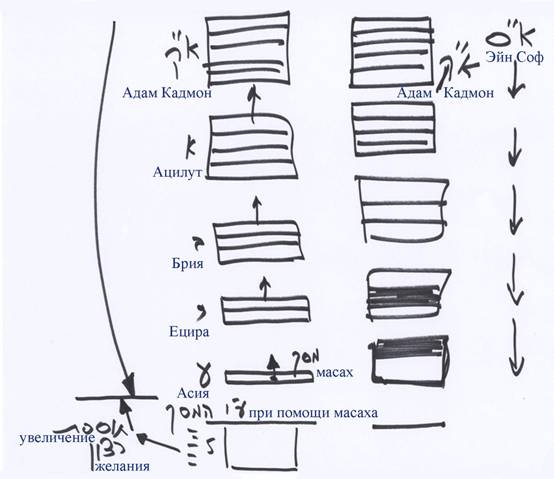 א"ק
א"ק
א"ס
Эйн Соф
Адам Кадмон
Адам Кадмон
א
Ацилут
Брия
י
Ецира
מסך
масах
Асия
ע"י המסך
при помощи масаха
увеличение
תוספת
רצון
желания